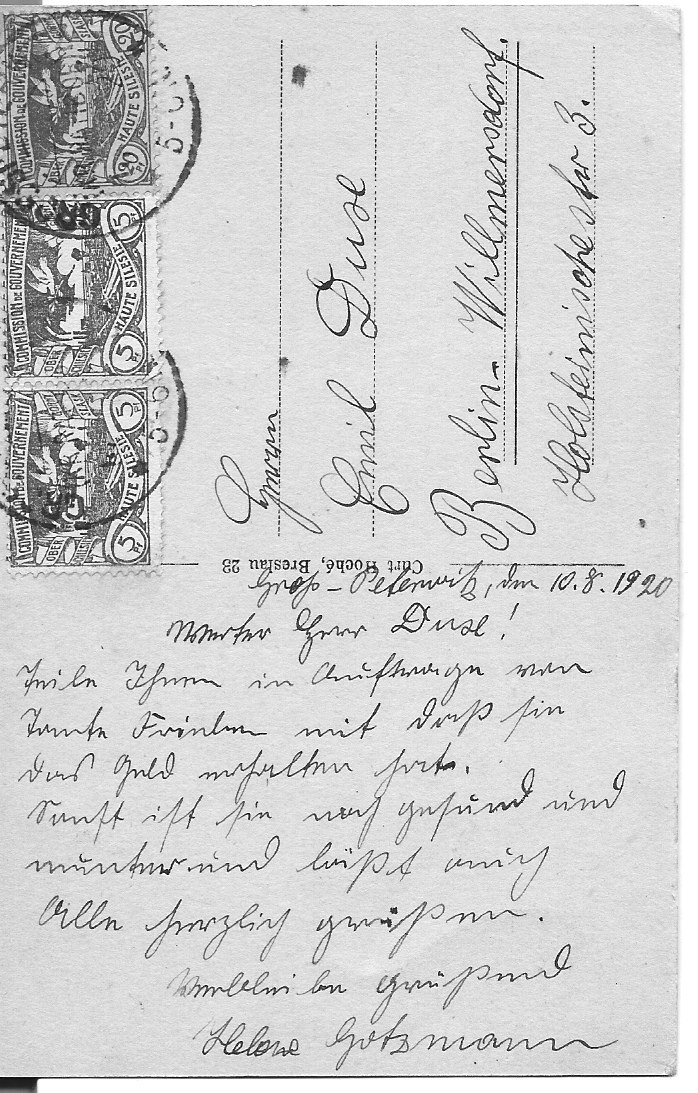 COMMISSION DE GOUVERNEMENT
HAUTE SILESIE
20
COMMISSION DE GOUVERNEMENT
OBER
HAUTE SILESIE
5
5
COMMISSION DE GOUVERNEMENT
OBER
HAUTE SILESIE
5
5
Herrn
Emil Duse
Berlin-Willmersdorf.
Holsteinischestr 3.
Curt Hoché, Breslau 23
Groß-Peterwitz, den 10.8.1920
Werter Herr Duse!
Teile Ihnen in Auftrage von
Tante mit daß sie
das Geld erhalten hat.
Sonst ist sie noch gesund und
munter und läßt auch
Alle herzlich grüßen.
Verbleibe grüßend
Helene Gotzmann